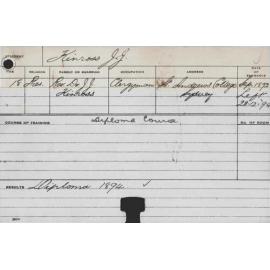 STUDENT
Kinross J.J.
AGE RELIGION PARENT OR GUARDIAN OCCUPATION ADDRESS DATE OF ENTRANCE
18 Pres. Rev. Dr. J. Clergyman St. Andrews College Sep. 1892
Kinross Sydney Left
COURSE OF TRAINING Diploma Course NO. OF ROOM
RESULTS Diploma 1894.